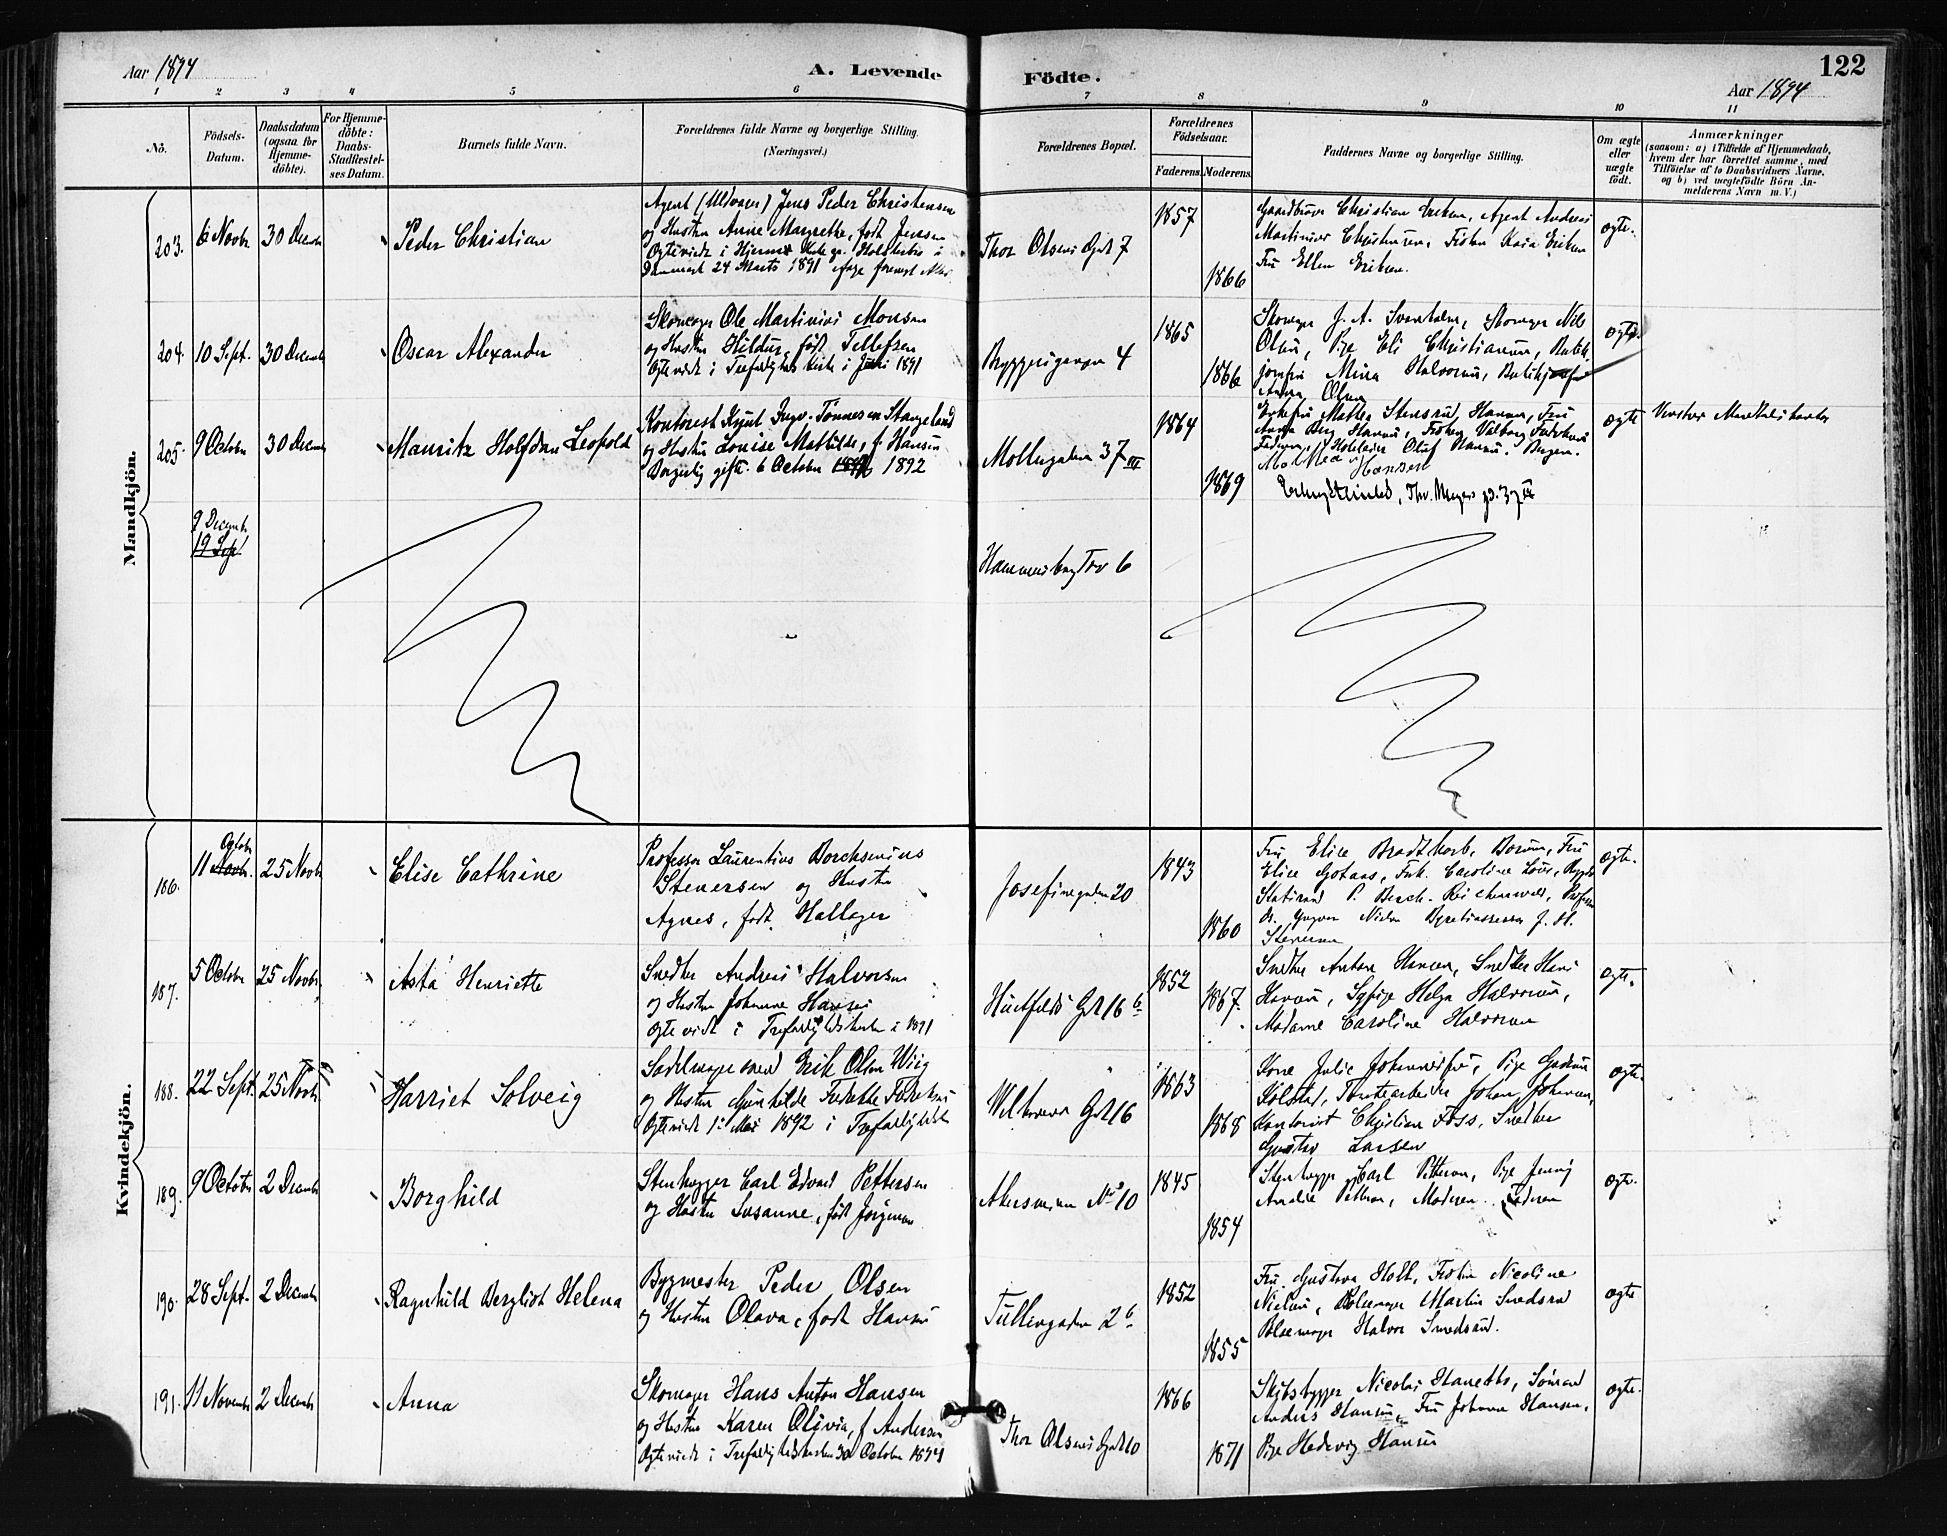 Aar 1894
A. Levende
Födte.
122
Aar 1894
1 2 3 4 5 6 7 8 9 10 11
No.
Födsels-
Datum.
Daabsdatum
(ogsaa for
Hjemme-
döbte).
For Hjemme-
döbte:
Daabs-
Stadfæstel-
ses Datum.
Barnets fulde Navn.
Forældrenes fulde Navne og borgerlige Stilling.
(Næringsvei.)
Forældrenes Bopæl.
Forældrenes
Födselsaar.
Faderens.
Moderens.
Faddernes Navne og borgerlige Stilling.
Om ægte
eller
uægte
födt.
Anmærkninger
(saasom: a) i Tilfælde af Hjemmedaab,
hvem der har forrettet samme, med
Tilföielse af to Daabsvidners Navne.
og b) ved uægtefödte Börn An-
melderens Navn m. V.)
Mandkjön.
203. 6 Novbr 30 Decmbr Peder Christian
Agent (Uldvarer) Jens Peder Christensen
og Hustru Anne Margrethe, født Jensen
Danmark 24 Marts 1891
Thor Olsens Gd 7
1857
1866
Christian Eriksen, Agent Andreas
Martinius Christensen, Frøken Kaia Eriksen
Fru Ellen Eriksen.
ægte.
204. 10 Sept. 30 Decembr Oscar Alexander
Skomager Ole Martinius Monsen
og Hustru Hildur, født Tellefsen
Ægteviede i Trefoldigheds Kirke i Juni 1891
Bryggerigangen 4
1865
1866
Skomager J. A. Svanholm, Skomager Nils
Olsen, Pige Eli Christiansen, Butik-
jomfru Mina Halvorsen, Butikjomfr
Anna Olsen
ægte.
205. 9 Octobr 30 Decembr Mauritz Halfdan Leopold
Kontorist Knut Ingv. Tønnesen Stangeland
og Hustru Louise Mathilde, f. Hansen
Borgerlig gifte 6 October 1892
Møllergaden 37 III
1864
1869
Enkefru Mathea Stensrud Hansen, Fru
Anna Berg Hansen, Frøken Valborg Fredriksen
Faderen, Hoteleier Oluf Hansen, Bergen.
Mathea Hansen
Thv. Meyers gd. 37 IV
ægte
9 Decembr
19 Sept
Hammersborg Torv 6
Kvindekjön.
186. 11 Octobr 25 Novbr Elise Cathrine
Professor Laurentius Borchsenius
Stenersen og Hustru
Agnes, født Hallager
Josefinegaden 20
1843
1860
Fru Elise Bradt, Fru
Elise Gotaas, Frk. Caroline Løvs,
Statsraad P. Birch-Reichenwald, Profess
Dr. Yngvar Nielsen Byretsassessor J. H.
Stenersen
ægte.
187. 5 Octobr 25 Novbr. Asta Henriette
Snedker Andreas Halvorsen
og Hustru Johanne Hansen
Ægteviede i Trefoldighedskirken i 1891
Huitfelds Gd 16 b
1852
1867.
Snedker Anton Hansen, Snedker Hans
Hansen, Sypige Helga Halvorsen,
Madame Caroline Halvorsen
ægte.
188. 22 Sept. 25 Novbr Harriet Solveig
Sadelmagersvend Erik Olsen Wiig
og Hustru Gunhilde Fredrikke
Ægteviede 1 Mai 1892 i Trefoldighedsk
Gd 16
1863
1868
Kone Julie Johannesen, Pige Gudrun
Kolstad, Johan Johansen,
Kontorist Christian Foss, Snedker
Gustav Larsen
ægte.
189. 9 Octobr 2 Decembr Borghild
Stenhugger Carl Edvard Pettersen
og Hustru Susanne, født Jørgensen
Akersveien No 10
1845
1854
Stenhugger Carl Pettersen, Pige Jenny
Amalie Pettersen, Moderen. Faderen
ægte.
190. 28 Sept. 2 Decembr Ragnhild Bergliot Helena
Bygmester Peder Olsen
og Hustru Olava, født Hansen
Tullingaden 2 b
1852
1855
Fru Gustava Holt, Frøken Nicoline
Nielsen, Pølsemager Martin Smedsrud
Pølsemager Halvor Smedsrud.
ægte
191. 11 Novembr 2 Decembr Anna
Skomager Hans Anton Hansen
og Hustru Karen Olivia, f. Andersen
Ægteviede i Trefoldighedskirken 30 October 1894
Thor Olsens Gd 10
1866
1871
Skibsbygger Nicolai, Sømand
Anders Hansen, Fru Johanna Hansen,
Pige Hedevig Hansen
ægte.